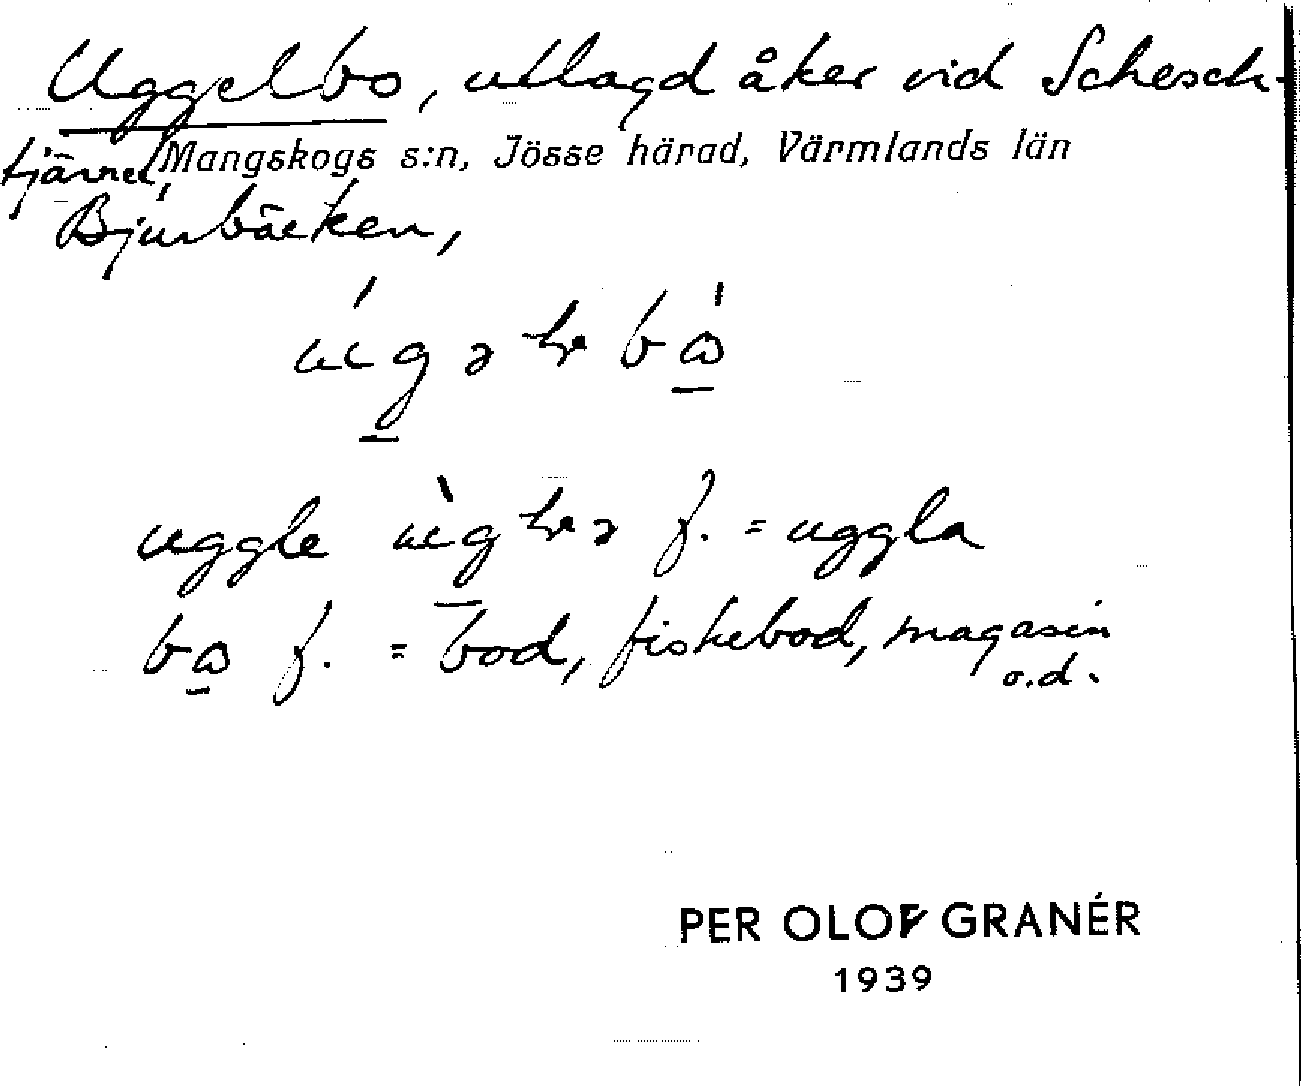 Uggelbo, utlagd åker vid Schesch-
tjärnet,
Mangskogs s:n, Jösse härad, Värmlands län
Bjurbäcken,
uggle f. = uggla
f. = bod, fiskebod, magasin
o.d.
PER OLOF GRANÉR
1939